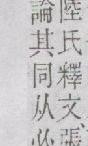 陸氏釋文張
論其同从必